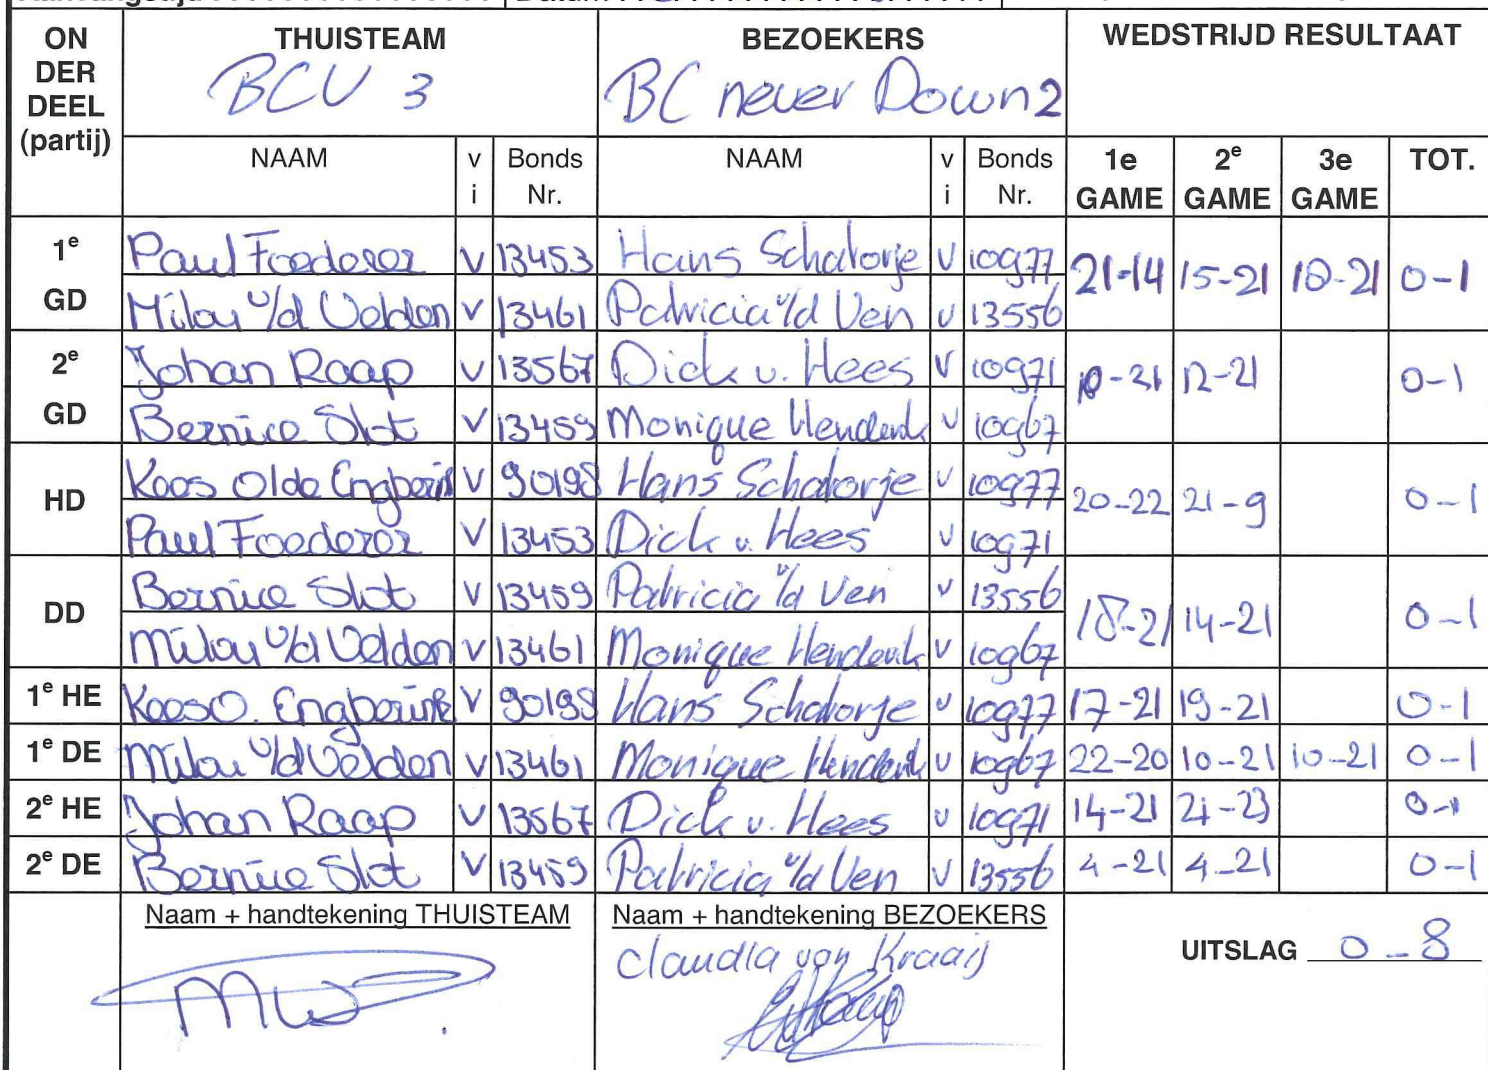 Datum
ON DER DEEL (partij) THUISTEAM BEZOEKERS WEDSTRIJD RESULTAAT
BCV 3 BC never Down 2
NAAM vi Bonds Nr. NAAM vi Bonds Nr. 1e GAME 2e GAME 3e GAME TOT.
1e GD Paul Foederer v 13453 Hans Schatorje v 10977 21-14 15-21 18-21 0-1
Milou v/d Velden v 13461 Patricia v/d Ven v 13556
2e GD Johan Raap v 13567 Dick v. Hees v 10971 10-21 12-21 0-1
Bernice Slot v 13459 Monique v 10967
HD Koos Olde Engberink v 90198 Hans Schatorje v 10977 20-22 21-9 0-1
Paul Foederer v 13453 Dick v. Hees v 10971
DD Bernice Slot v 13459 Patricia v/d Ven v 13556 18-21 14-21 0-1
Milou v/d Velden v 13461 Monique v 10967
1e HE Koos O. Engberink v 90198 Hans Schatorje v 10977 17-21 19-21 0-1
1e DE Milou v/d Velden v 13461 Monique v 10967 22-20 10-21 10-21 0-1
2e HE Johan Raap v 13567 Dick v. Hees v 10971 14-21 21-23 0-1
2e DE Bernice Slot v 13459 Patricia v/d Ven v 13556 4-21 4-21 0-1
Naam + handtekening THUISTEAM Naam + handtekening BEZOEKERS
Claudia van Kraaij
UITSLAG 0-8